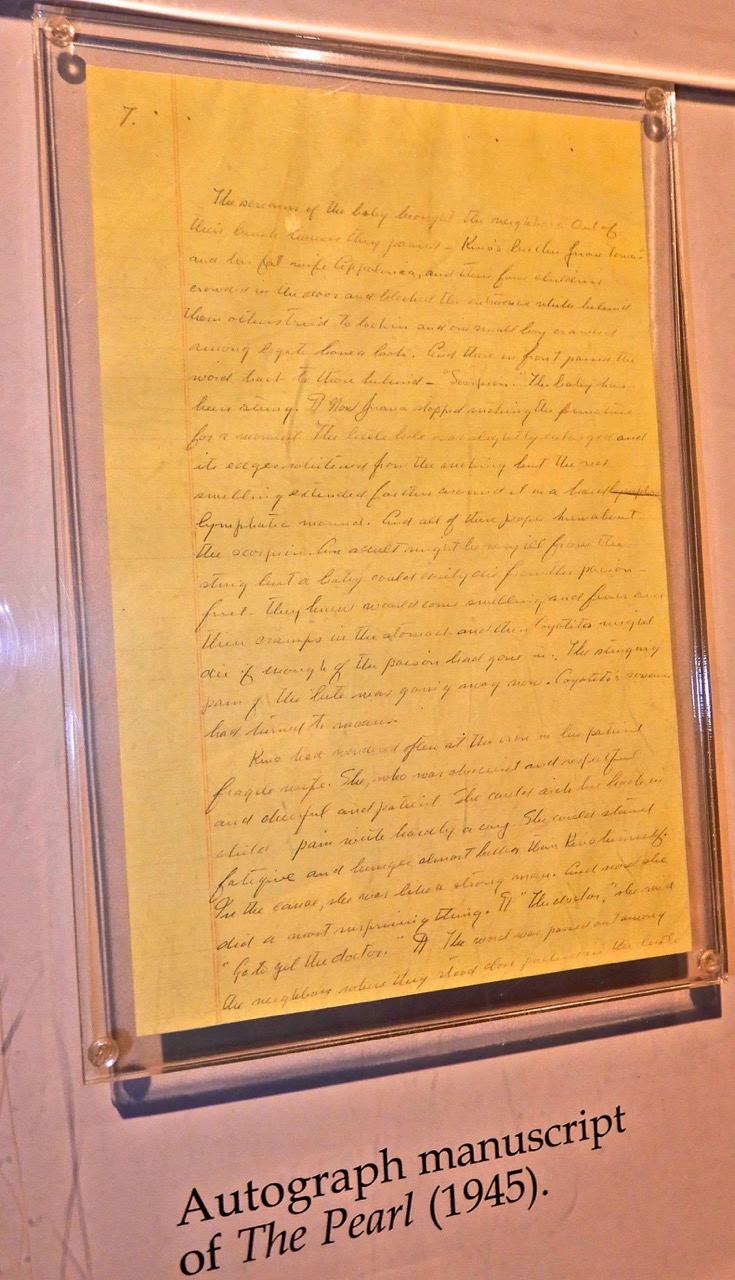 7.
The screams of the baby brought the neighbors. Out of
their brush houses they poured – Kino's brother Juan Tomás
and his fat wife Apolonia, and their four children
crowded in the door and blocked the entrance while behind
them others tried to look in and one small boy crawled
among legs to have a look. And those in front passed the
word back to those behind – "Scorpion." The baby has
been stung. ¶ Now Juana stopped sucking the puncture
for a moment. The little hole was slightly enlarged and
its edges whitened from the sucking but the red
swelling extended farther around it in a hard
lymphatic mound. And all of these people knew about
the scorpion. An adult might be very ill from the
sting but a baby could easily die from the poison –
first – they knew would come swelling and fever and
then cramps in the stomach and then Coyotito might
die if enough of the poison had gone in. The stinging
pain of the bite was going away now. Coyotito's screams
had turned to moans.
Kino had wondered often at the iron in his patient
fragile wife. She, who was obedient and respectful
and cheerful and patient she could arch her back in
child pain with hardly a cry. She could stand
fatigue and hunger almost better than Kino himself.
In the canoe, she was like a strong man. And now she
did a most surprising thing. ¶ "The doctor," she said
"Go to get the doctor." ¶ The word was passed out among
the neighbors where they stood close packed in the little
Autograph manuscript
of The Pearl (1945).